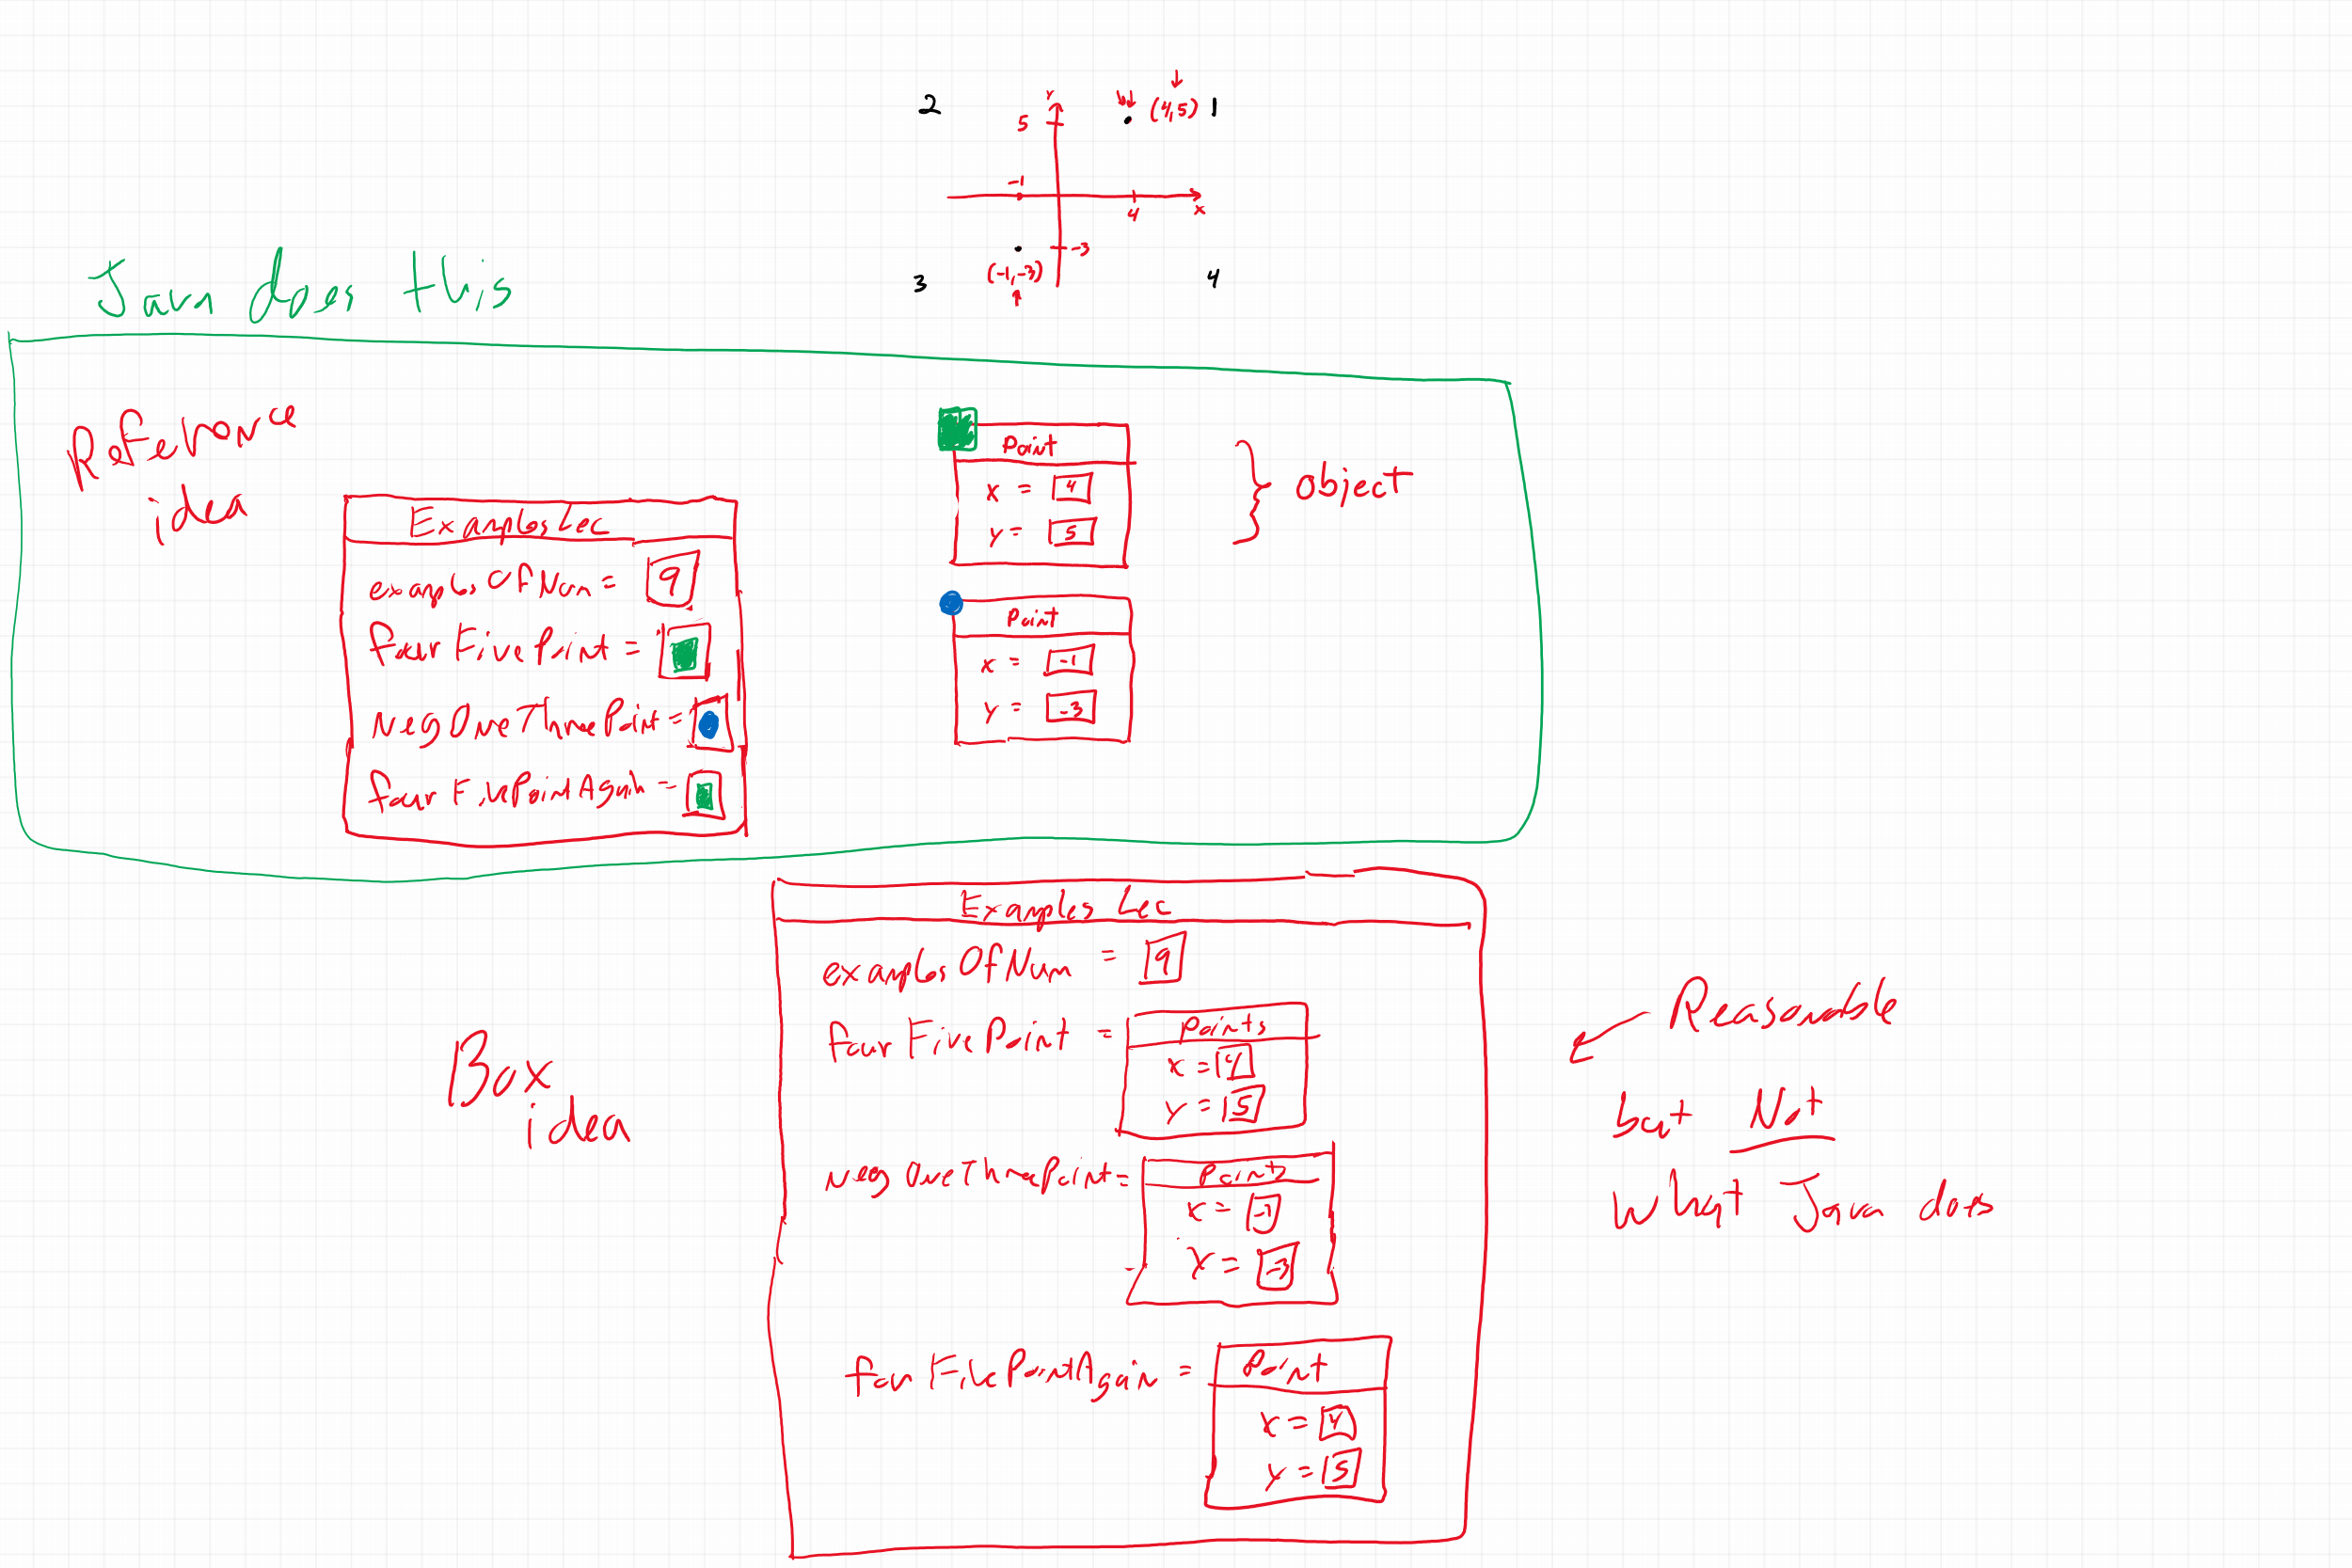 2
Y
5
(4,5)
1
-1
4
x
-3
(-1,-3)
3
4
Java does this
Reference
idea
ExamplesLec
examplesOfNum = 9
fourFivePoint =
negOneThreePoint =
fourFivePointAgain =
Point
x = 4
y = 5
object
Point
x = -1
y = -3
Box
idea
Examples Lec
examplesOfNum = 9
fourFivePoint =
Points
x = 4
y = 5
negOneThreePoint =
Point
x = -1
x = -3
fourFivePointAgain =
Point
x = 4
y = 5
Reasonable
but Not
What Java does